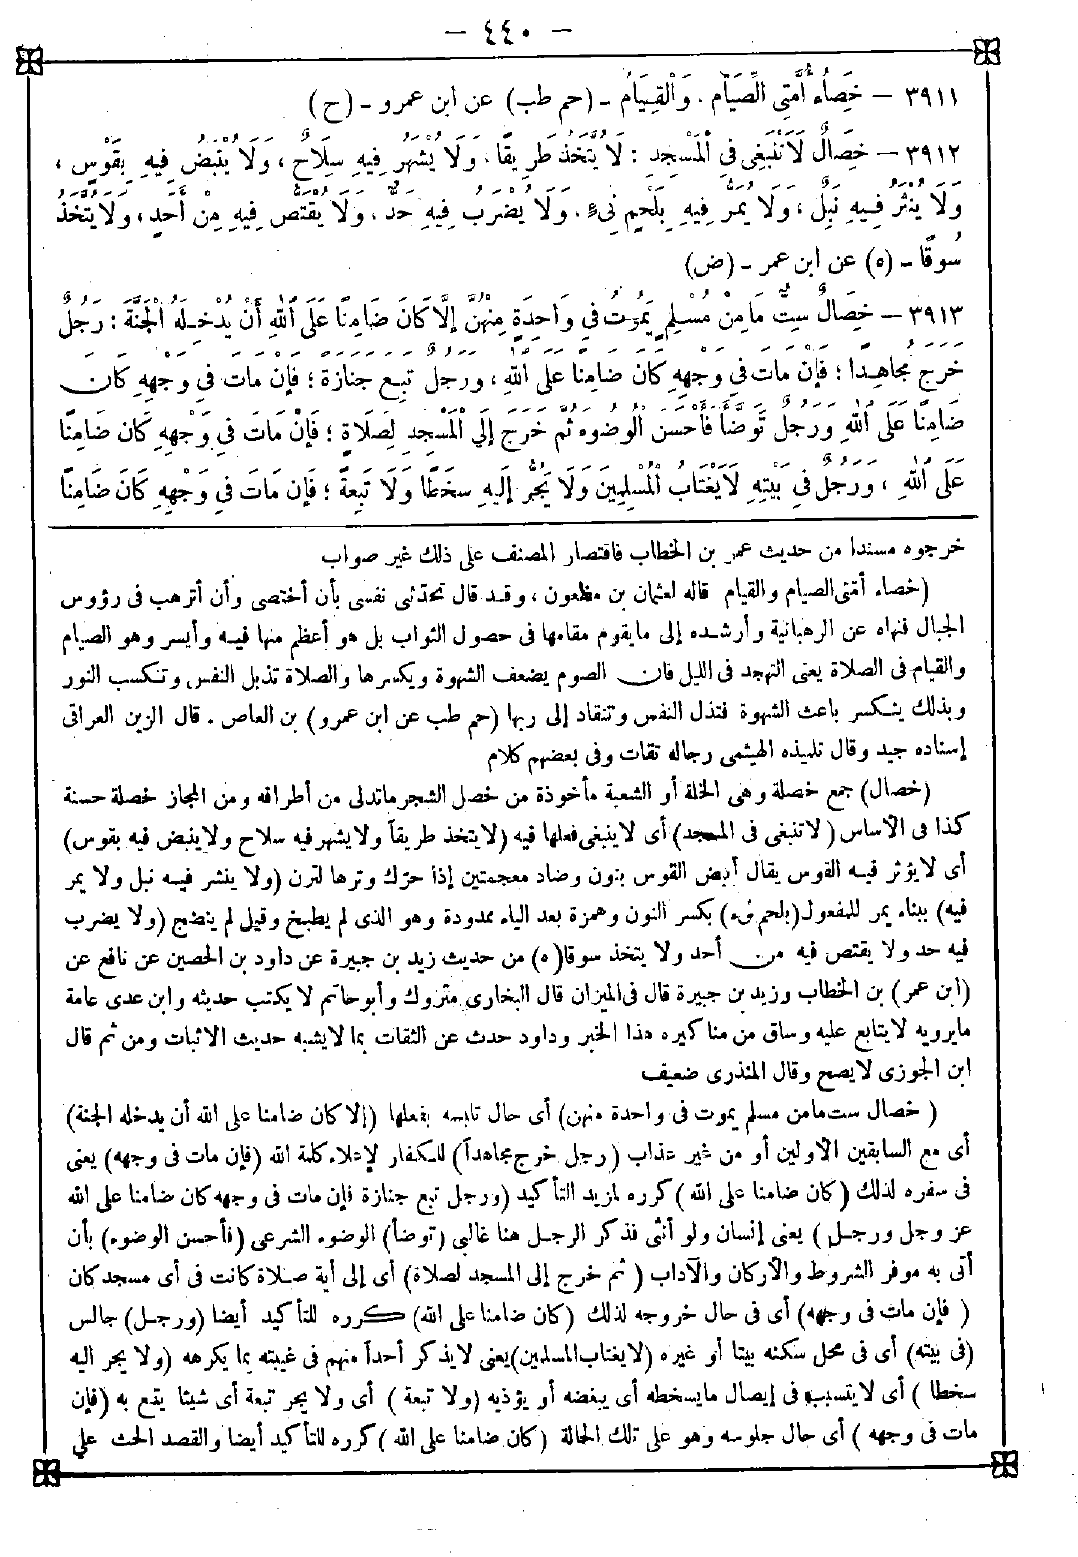 - ٤٤٠ -
٣٩١١ - خِصَاءُ أُمَّتِي الصِّيَامُ . وَالْقِيَامُ - (حم طب) عن ابن عمرو - (ح)
٣٩١٢ - خِصَالٌ لَا تَنْبَغِي فِي الْمَسْجِدِ : لَا يُتَّخَذُ طَرِيقًا، وَلَا يُشْهَرُ فِيهِ سِلَاحٌ ، وَلَا يُنْبَضُ فِيهِ بِقَوْسٍ ،
وَلَا يُنْثَرُ فِيهِ نَبْلٌ ، وَلَا يُمَرُّ فِيهِ بِلَحْمٍ نِيءٍ، وَلَا يُضْرَبُ فِيهِ حَدٌّ، وَلَا يُقْتَصُّ فِيهِ مِنْ أَحَدٍ، وَلَا يُتَّخَذُ
سُوقًا - (ه) عن ابن عمر - (ض)
٣٩١٣ - خِصَالٌ سِتٌّ مَا مِنْ مُسْلِمٍ يَمُوتُ فِي وَاحِدَةٍ مِنْهُنَّ إِلَّا كَانَ ضَامِنًا عَلَى اللهِ أَنْ يُدْخِلَهُ الْجَنَّةَ : رَجُلٌ
خَرَجَ مُجَاهِدًا ؛ فَإِنْ مَاتَ فِي وَجْهِهِ كَانَ ضَامِنًا عَلَى اللهِ ، وَرَجُلٌ تَبِعَ جَنَازَةً ؛ فَإِنْ مَاتَ فِي وَجْهِهِ كَانَ
ضَامِنًا عَلَى اللهِ وَرَجُلٌ تَوَضَّأَ فَأَحْسَنَ الْوُضُوءَ ثُمَّ خَرَجَ إِلَى الْمَسْجِدِ لِصَلَاةٍ ؛ فَإِنْ مَاتَ فِي وَجْهِهِ كَانَ ضَامِنًا
عَلَى اللهِ ، وَرَجُلٌ فِي بَيْتِهِ لَا يَغْتَابُ الْمُسْلِمِينَ وَلَا يَجُرُّ إِلَيْهِ سَخَطًا وَلَا تَبِعَةً ؛ فَإِنْ مَاتَ فِي وَجْهِهِ كَانَ ضَامِنًا
خرجوه مسندا من حديث عمر بن الخطاب فاقتصار المصنف على ذلك غير صواب
(خصاء أمتى الصيام والقيام قاله لعثمان بن مظعون ، وقد قال تحدثنى نفسى بأن أختصى وأن أترهب فى رؤوس
الجبال فنهاه عن الرهبانية وأرشده إلى ما يقوم مقامها فى حصول الثواب بل هو أعظم منها فيه وأيسر وهو الصيام
والقيام فى الصلاة يعنى التهجد فى الليل فان الصوم يضعف الشهوة ويكسرها والصلاة تذبل النفس وتكسب النور
وبذلك ينكسر باعث الشهوة فتذل النفس وتنقاد إلى ربها (حم طب عن ابن عمرو) بن العاص . قال الزين العراقى
إسناده جيد وقال تلميذه الهيثمى رجاله ثقات وفى بعضهم كلام
(خصال) جمع خصلة وهى الخلة أو الشعبة مأخوذة من خصل الشجر ما تدلى من أطرافه ومن المجاز خصلة حسنة
كذا فى الأساس (لا تنبغى فى المسجد) أى لا ينبغى فعلها فيه (لا يتخذ طريقاً ولا يشهر فيه سلاح ولا ينبض فيه بقوس)
أى لا يؤثر فيه القوس يقال أنبض القوس بنون وضاد معجمتين إذا حرك وترها لترن (ولا ينثر فيه نبل ولا يمر
فيه) ببناء يمر للمفعول (بلحم نىء) بكسر النون وهمزة بعد الياء ممدودة وهو الذى لم يطبخ وقيل لم ينضج (ولا يضرب
فيه حد ولا يقتص فيه من أحد ولا يتخذ سوقا (ه) من حديث زيد بن جبيرة عن داود بن الحصين عن نافع عن
(ابن عمر) بن الخطاب وزيد بن جبيرة قال فى الميزان قال البخارى متروك وأبو حاتم لا يكتب حديثه وابن عدى عامة
ما يرويه لا يتابع عليه وساق من مناكيره هذا الخبر وداود حدث عن الثقات بما لا يشبه حديث الاثبات ومن ثم قال
ابن الجوزى لا يصح وقال المنذرى ضعيف
( خصال ست ما من مسلم يموت فى واحدة منهن) أى حال تلبسه بفعلها (إلا كان ضامنا على الله أن يدخله الجنة)
أى مع السابقين الأولين أو من غير عذاب (رجل خرج مجاهداً) للكفار لإعلاء كلمة الله (فإن مات فى وجهه) يعنى
فى سفره لذلك (كان ضامنا على الله) كرره لمزيد التأكيد (ورجل تبع جنازة فإن مات فى وجهه كان ضامنا على الله
عز وجل ورجل ) يعنى إنسان ولو أنثى فذكر الرجل هنا غالبى (توضأ) الوضوء الشرعى (فأحسن الوضوء) بأن
أتى به موفر الشروط والأركان والآداب ( ثم خرج إلى المسجد لصلاة) أى إلى أية صلاة كانت فى أى مسجد كان
( فإن مات فى وجهه) أى فى حال خروجه لذلك (كان ضامنا على الله) كرره للتأكيد أيضا (ورجل) جالس
(فى بيته) أى فى محل سكنه بيتا أو غيره (لا يغتاب المسلمين) يعنى لا يذكر أحداً منهم فى غيبته بما يكرهه (ولا يجر اليه
سخطا ) أى لا يتسبب فى إيصال ما يسخطه أى يبغضه أو يؤذيه (ولا تبعة ) أى ولا يجر تبعة أى شيئا يتبع به (فإن
مات فى وجهه ) أى حال جلوسه وهو على تلك الحالة (كان ضامنا على الله) كرره للتأكيد أيضا والقصد الحث على